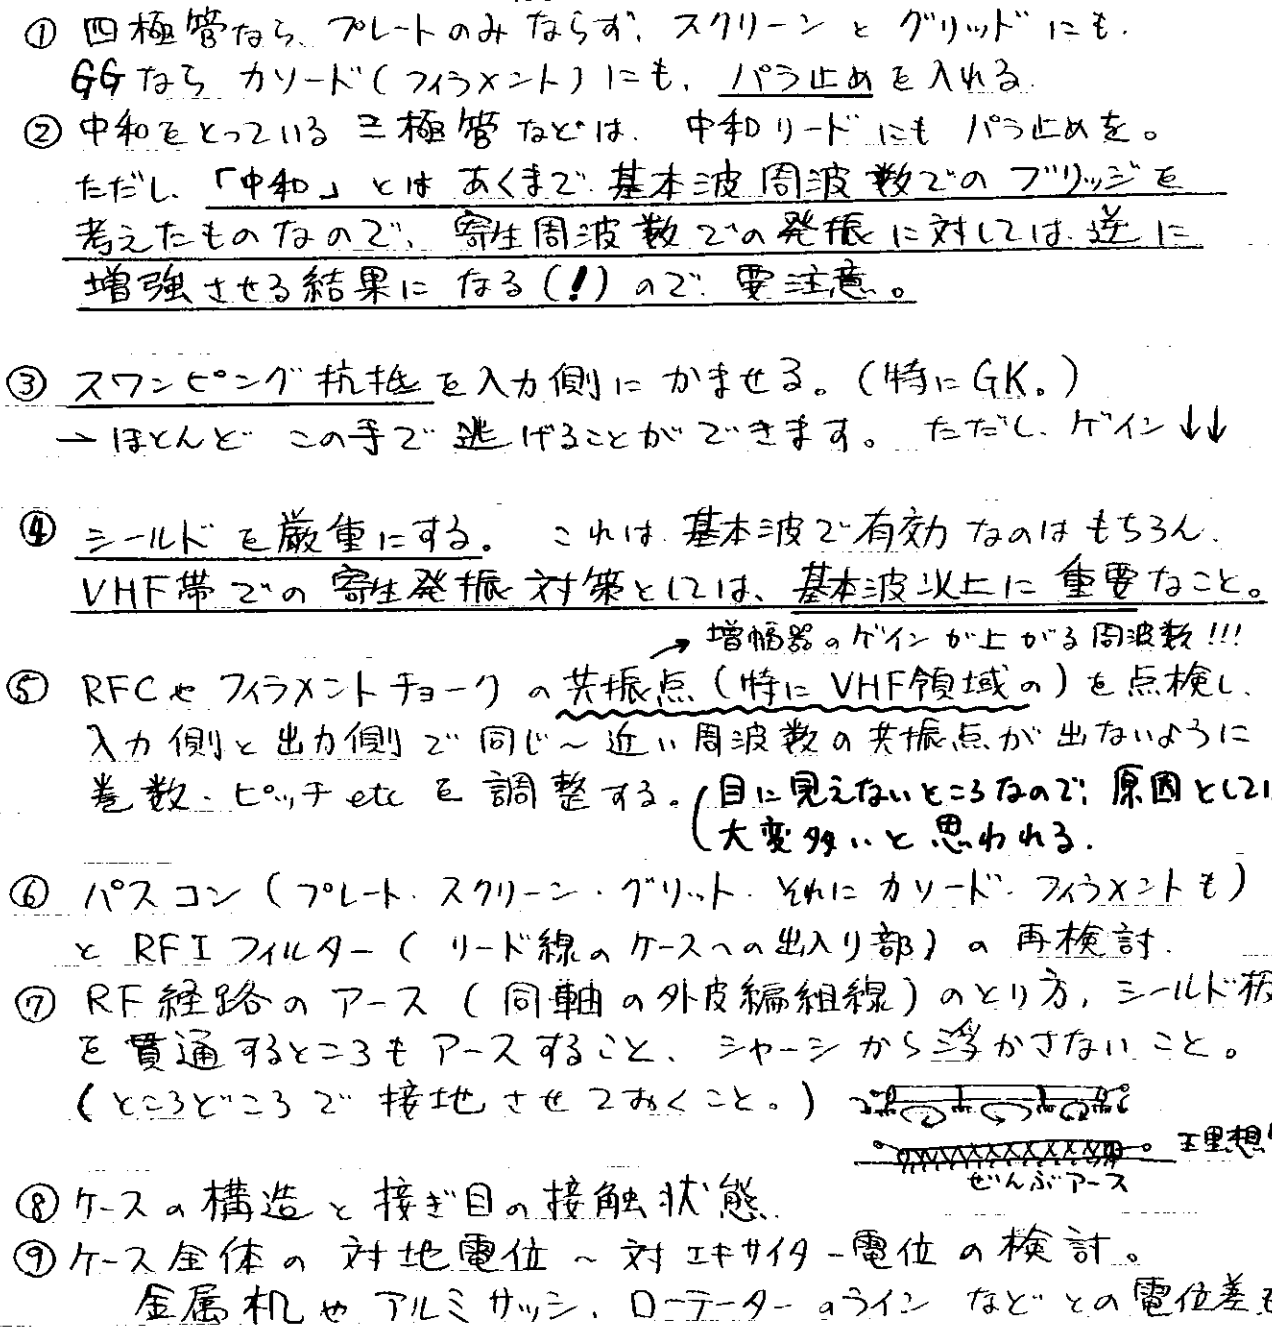 ① 四極管なら、プレートのみならず、スクリーンとグリッドにも、
GGなら カソード(フィラメント)にも、パラ止めを入れる.
② 中和をとっている三極管などは、中和リードにもパラ止めを。
ただし、「中和」とはあくまで基本波周波数でのブリッジを
考えたものなので、寄生周波数での発振に対しては逆に
増強させる結果になる(!)ので要注意。
③ スワンピング抵抗を入力側にかませる。(特にGK。)
→ほとんどこの手で逃げることができます。ただし、ゲイン↓↓
④ シールドを厳重にする。これは基本波で有効なのはもちろん、
VHF帯での寄生発振対策としては、基本波以上に重要なこと。
→増幅器のゲインが上がる周波数!!!
⑤ RFCやフィラメントチョークの共振点(特にVHF領域の)を点検し、
入力側と出力側で同じ～近い周波数の共振点が出ないように
巻数・ピッチetcを調整する。(目に見えないところなので、原因として
大変多いと思われる.
⑥ パスコン(プレート・スクリーン・グリット・それにカソード・フィラメントも)
とRFIフィルター(リード線のケースへの出入り部)の再検討.
⑦ RF経路のアース(同軸の外皮編組線)のとり方,シールド板
を貫通するところもアースすること、シャーシから浮かさないこと。
(ところどころで接地させておくこと。)
理想
ぜんぶアース
⑧ ケースの構造と接ぎ目の接触状態.
⑨ ケース全体の対地電位～対エキサイター電位の検討。
金属机やアルミサッシ、ローテーターのラインなどとの電位差も